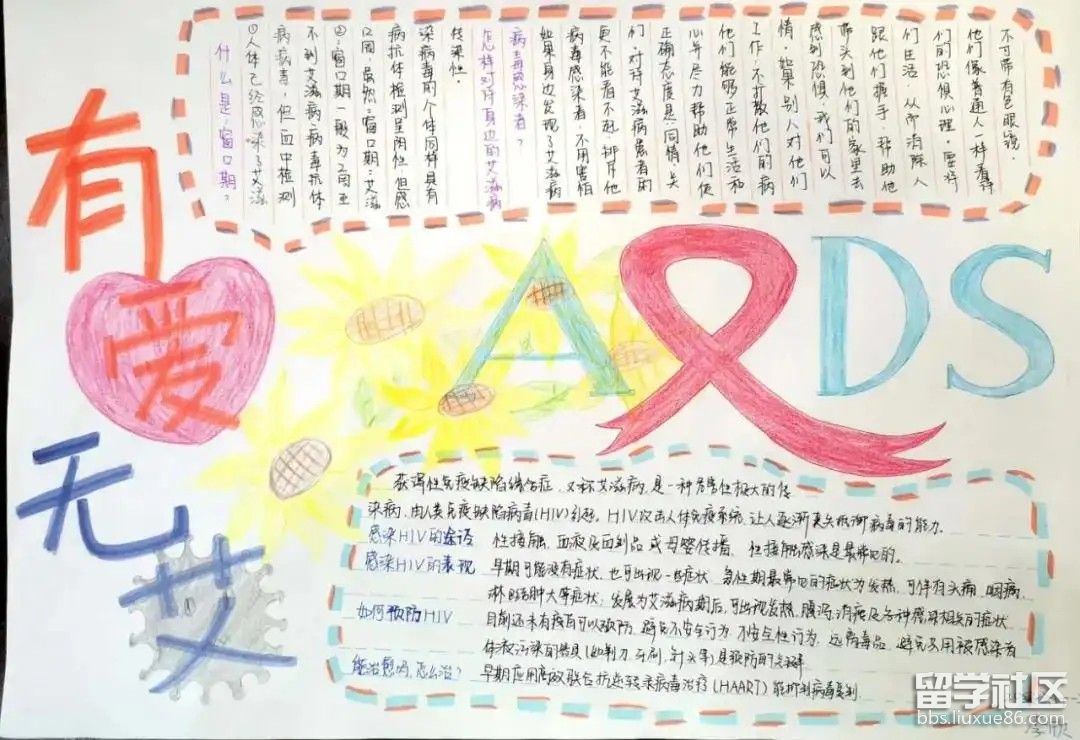 有
爱
无
艾
什么是:窗口期?
①人体已经感染了艾滋
病病毒,但血中检测
不到艾滋病病毒抗体
②:窗口期一般为2周至
12周,虽然:窗口期:艾滋
病抗体检测呈阴性,但感
染病毒的个体同样具有
传染性.
怎样对待身边的艾滋病
病毒感染者?
如果身边发现了艾滋病
病毒感染者,不用害怕
更不能看不起、排斥他
们,对待艾滋病患者的
正确态度是:同情、关
心并尽力帮助他们使
他们能够正常生活和
工作,不打散他们的病
情,如果别人对他们
感到恐惧,我们可以
带头到他们的家里去
跟他们握手,帮助他
们生活,从而消除人
们的恐惧心理,要将
他们像普通人一样看待
不可带有色眼镜.
AIDS
获得性免疫缺陷综合症,又称艾滋病,是一种危害性极大的传
染病,由人类免疫缺陷病毒(HIV)引起,HIV攻击人体免疫系统,让人逐渐丧失抵御病毒的能力.
感染HIV的途径 性接触、血液及血制品或母婴传播、性接触感染是最常见的.
感染HIV的表现 早期可能没有症状,也可出现一些症状,急性期最常见的症状为发热,可伴有头痛、咽痛、
淋巴结肿大等症状;发展为艾滋病期后,可出现发热、腹泻、消瘦及各种感染相关的症状
如何预防HIV 目前还未有疫苗可以预防,避免不安全行为,不安全性行为,远离毒品,避免不用被感染者
体液污染的器具(如剃刀、牙刷,针头等)是预防的关键
能治愈吗,怎么治? 早期应用高效联合抗逆转录病毒治疗(HAART)能抑制病毒复制
留学社区
bbs.liuxue86.com